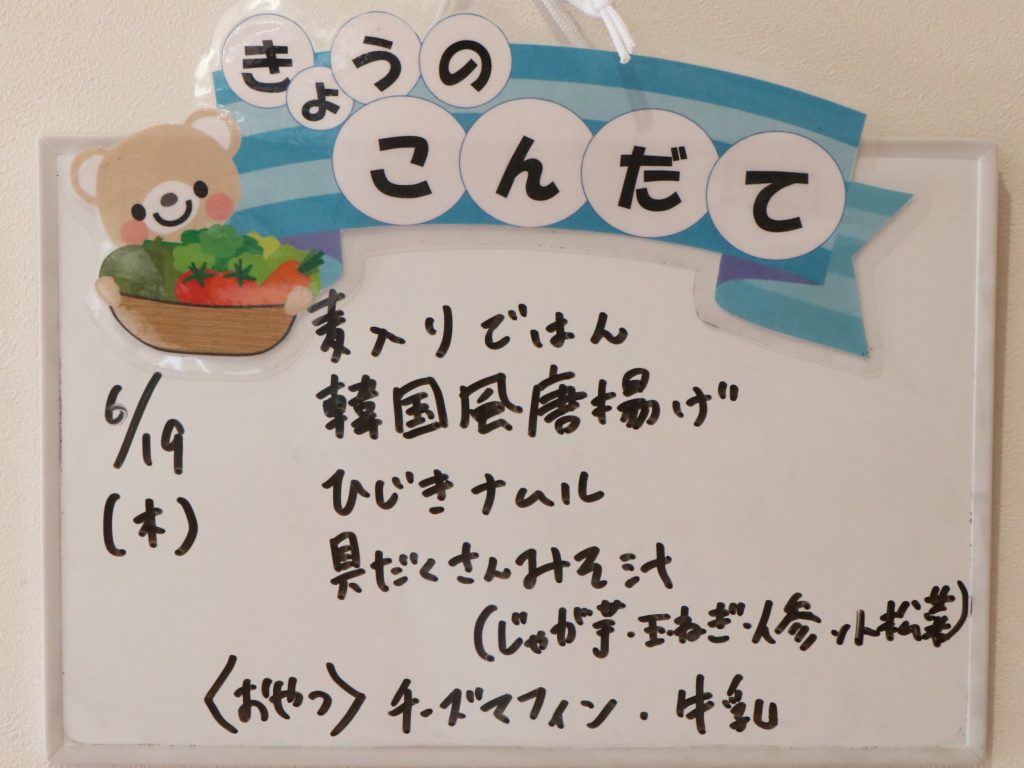 きょうの
こんだて
麦入りごはん
韓国風唐揚げ
6/19
(木)
ひじきナムル
具だくさんみそ汁
(じゃが芋・玉ねぎ・人参・小松菜)
〈おやつ〉チーズマフィン・牛乳